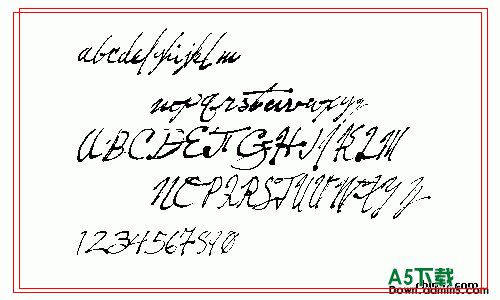 abcdefghijklm
nopqrstuvwxyz
ABCDEFGHIJKLM
NOPQRSTUVWXYZ
1234567890
A5下载
Down.admin5.com